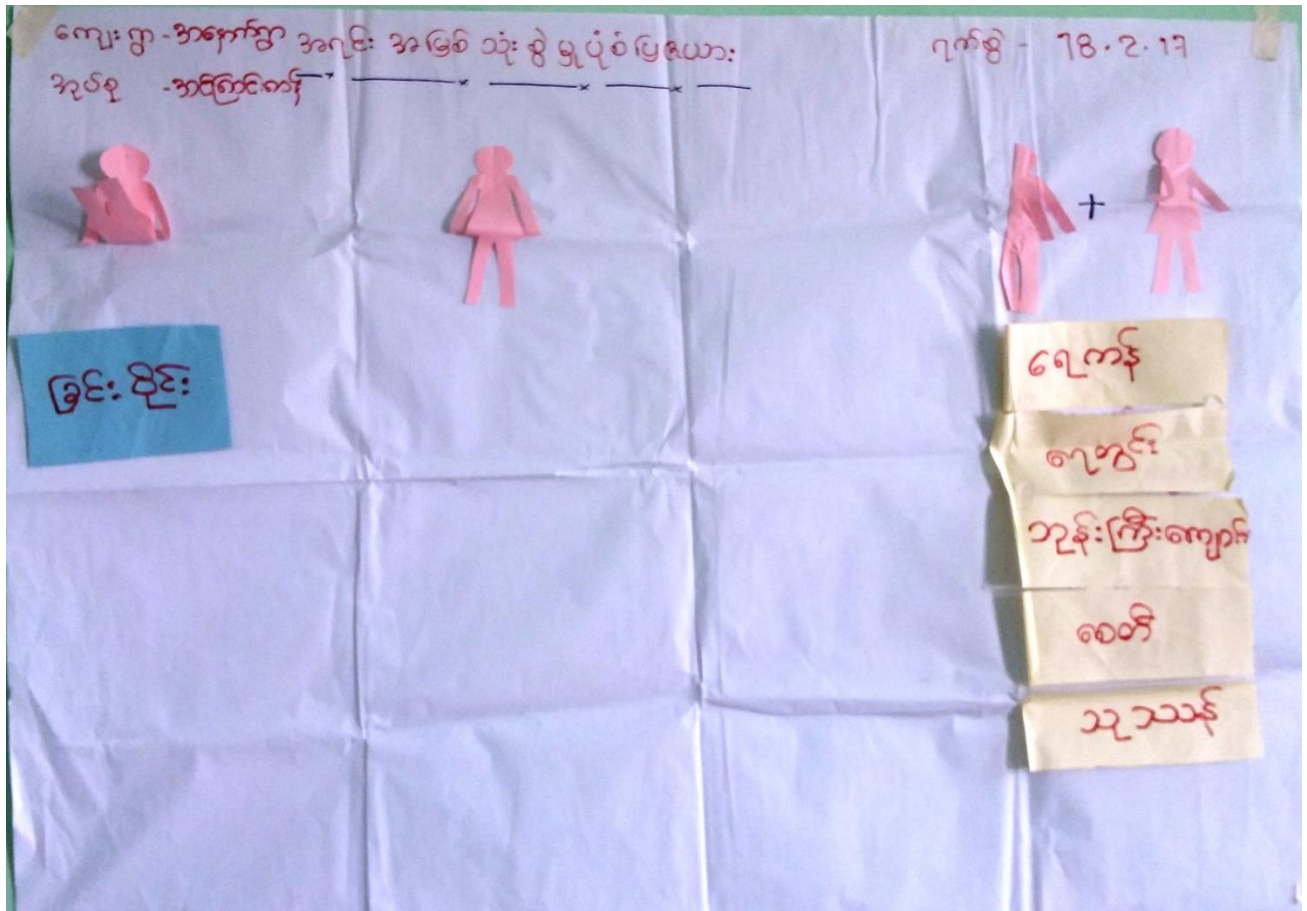 ကျေးရွာ - အနောက်ရွာ အရင်း အမြစ် သုံး စွဲ မှု ပုံ စံ ပြ ဇယား ရက်စွဲ - 18.2.17
အုပ်စု - အင်ကြင်းကန်
ခြင်း ဝိုင်း
ရေကန်
ရေတွင်း
ဘုန်းကြီးကျောင်း
စေတီ
သုဿာန်